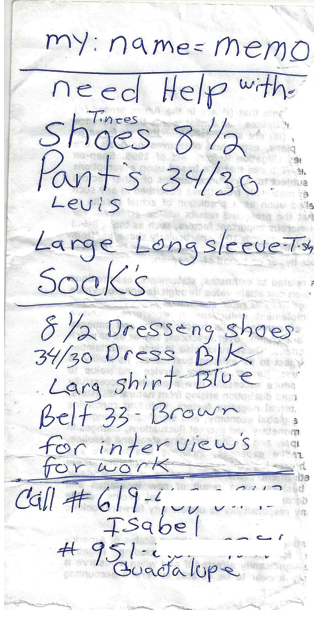 my: name = memo
need Help with
Tinees
shoes 8 1/2
Pant's 34/30
Levis
Large Longsleeve-T-sh
Sock's
8 1/2 Dresseng shoes
34/30 Dress Blk
Larg shirt Blue
Belt 33 - Brown
for interview's
for work
Call # 619-
Isabel
# 951-
Guadalupe